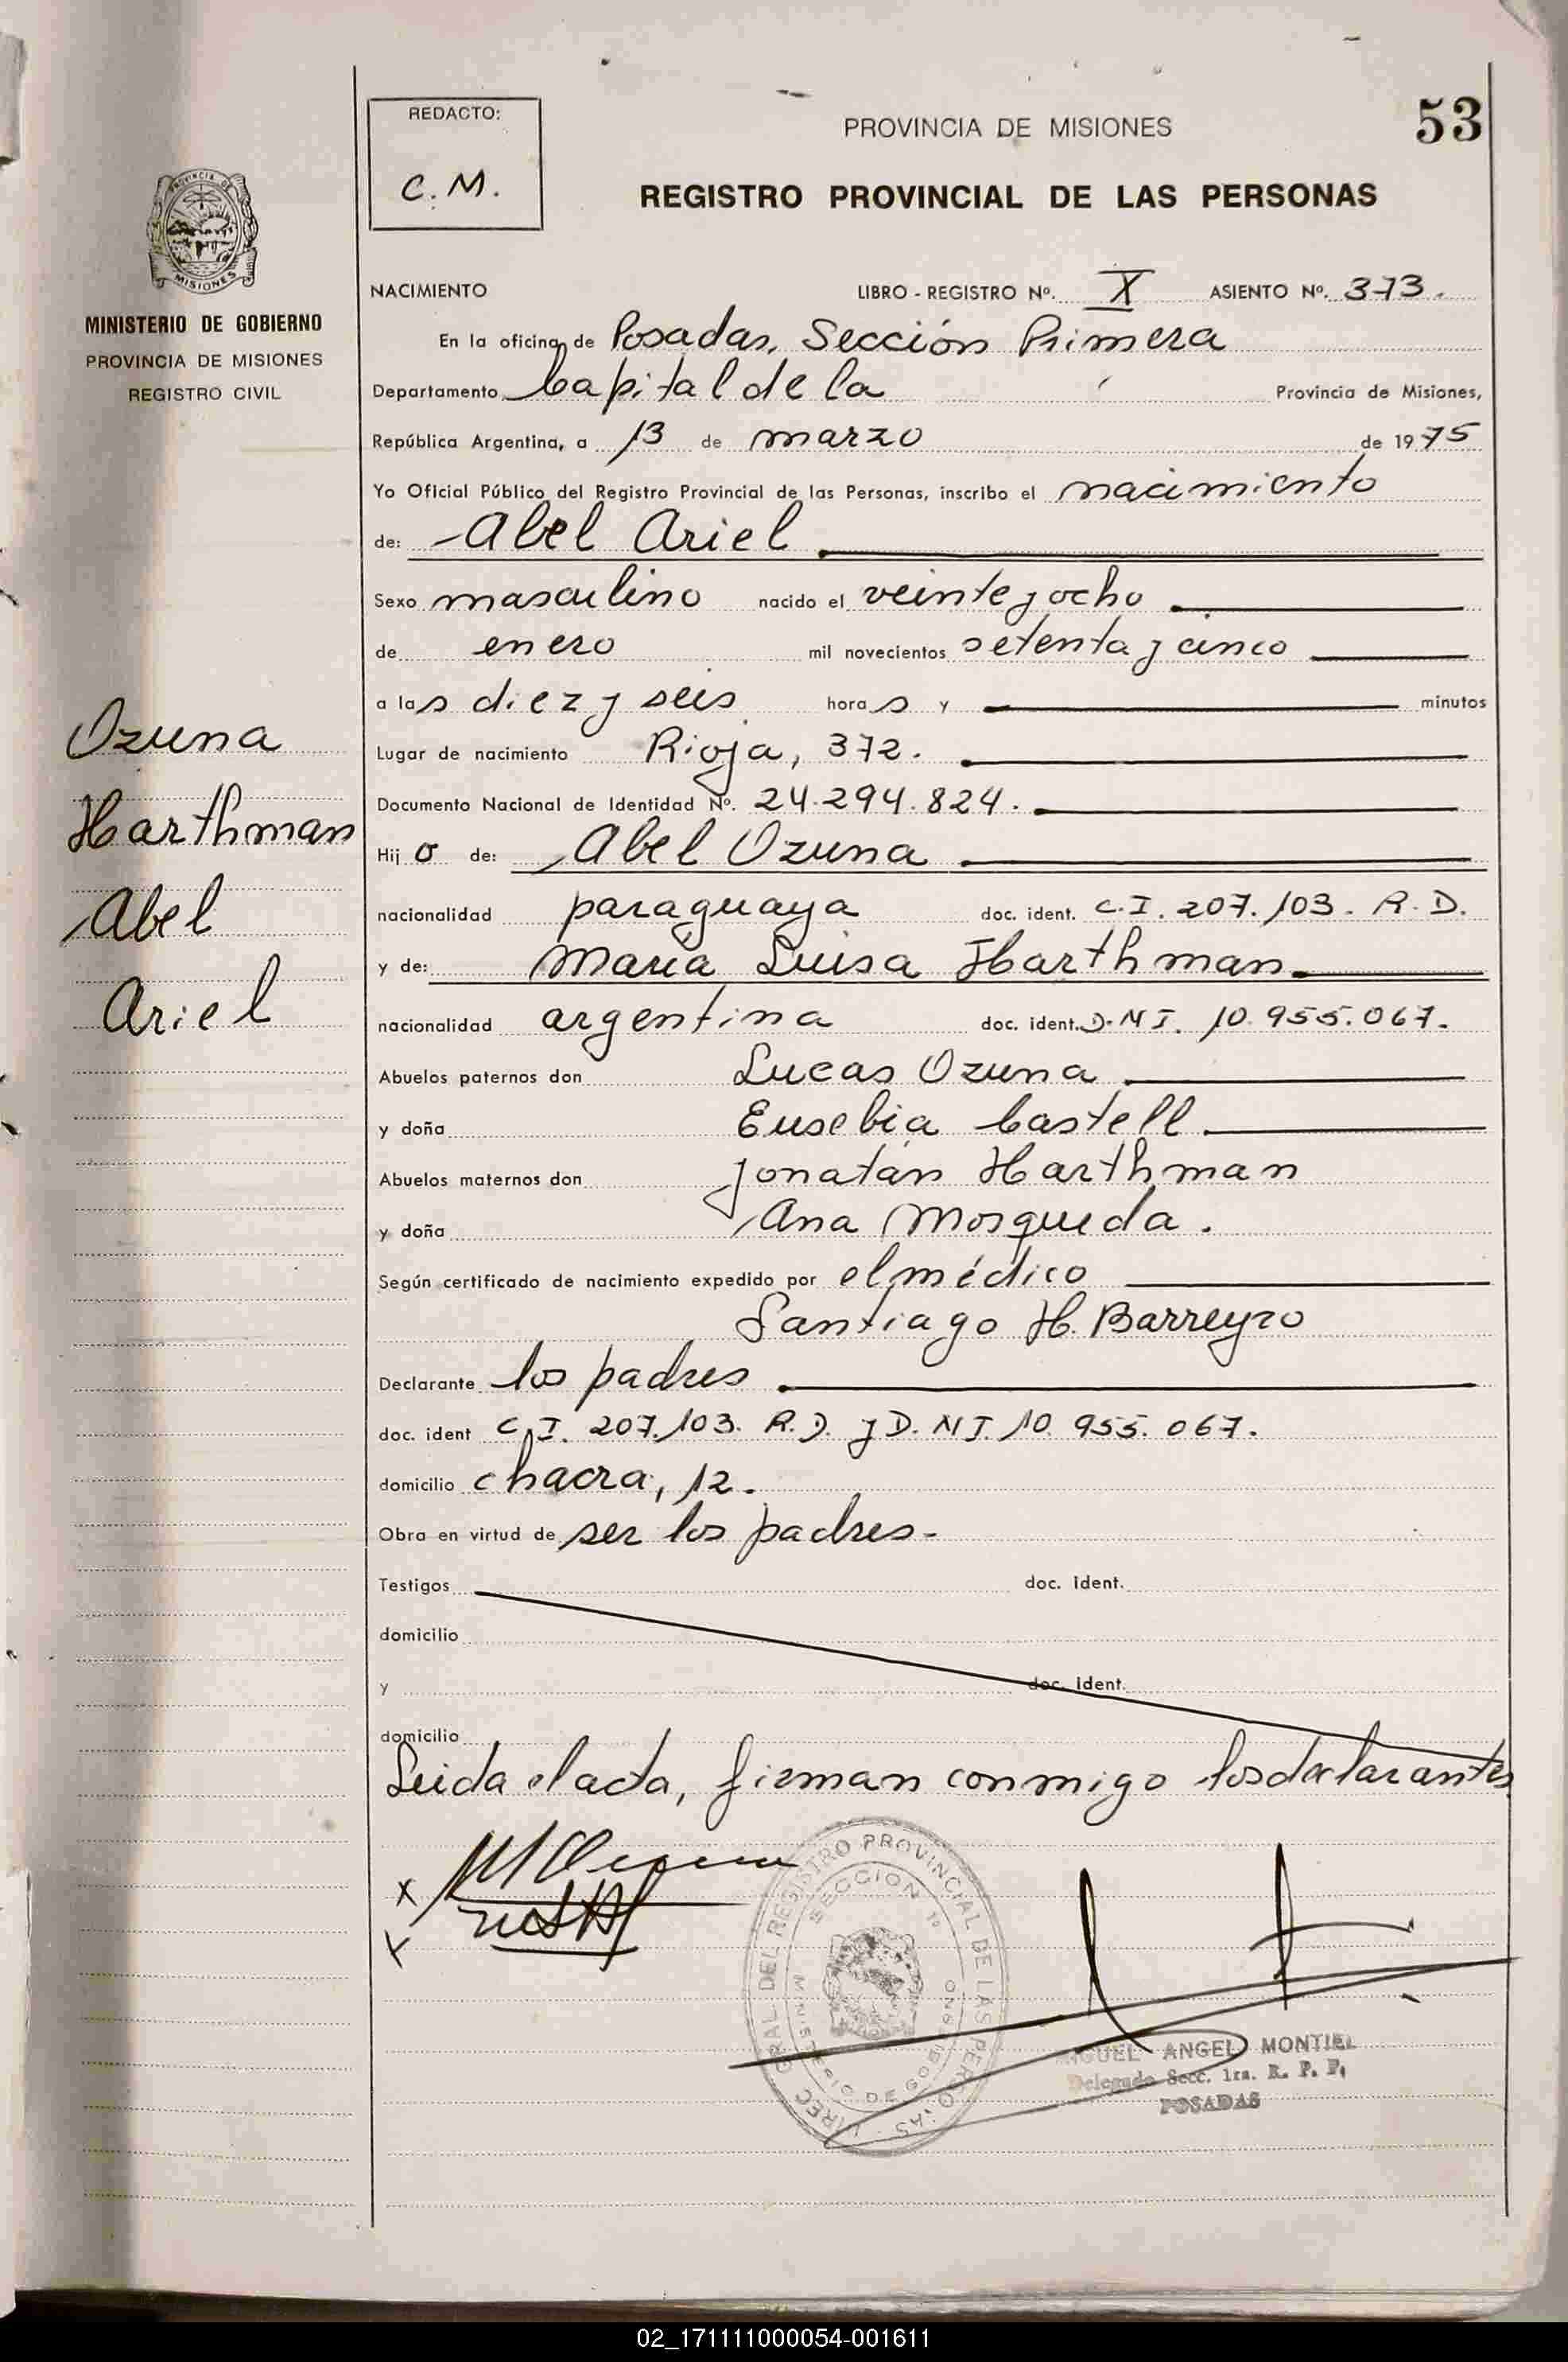 53
REDACTO:
C.M.
PROVINCIA DE MISIONES
REGISTRO PROVINCIAL DE LAS PERSONAS
PROVINCIA DE
MISIONES
MINISTERIO DE GOBIERNO
PROVINCIA DE MISIONES
REGISTRO CIVIL
Ozuna
Harthman
Abel
Ariel
NACIMIENTO LIBRO - REGISTRO Nº. X ASIENTO Nº. 373.
En la oficina de Posadas, Sección Primera
Departamento Capital de la Provincia de Misiones,
República Argentina, a 13 de marzo de 1975
Yo Oficial Público del Registro Provincial de las Personas, inscribo el nacimiento
de: Abel Ariel
Sexo masculino nacido el veinte y ocho
de enero mil novecientos setenta y cinco
a las diez y seis horas y minutos
Lugar de nacimiento Rioja, 372.
Documento Nacional de Identidad Nº. 24.294.824.
Hijo de: Abel Ozuna
nacionalidad paraguaya doc. ident. C.I. 207.103. R.D.
y de: María Luisa Harthman
nacionalidad argentina doc. ident. D.N.I. 10.955.067.
Abuelos paternos don Lucas Ozuna
y doña Eusebia Castell
Abuelos maternos don Jonatán Harthman
y doña Ana Mosqueda.
Según certificado de nacimiento expedido por el médico
Santiago H. Barreyro
Declarante los padres
doc. ident C.I. 207.103. R.D. y D.N.I. 10.955.067.
domicilio chacra, 12.
Obra en virtud de ser los padres-
Testigos doc. ident.
domicilio
y doc. ident.
domicilio
Leida el acta, firman conmigo los declarantes
x
x
DIREC. GRAL DEL REGISTRO PROVINCIAL DE LAS PERSONAS
SECCION 1º
MINISTERIO DE GOBIERNO
MIGUEL ANGEL MONTIEL
Delegado Secc. 1ra. R. P. P.
POSADAS
02_171111000054-001611